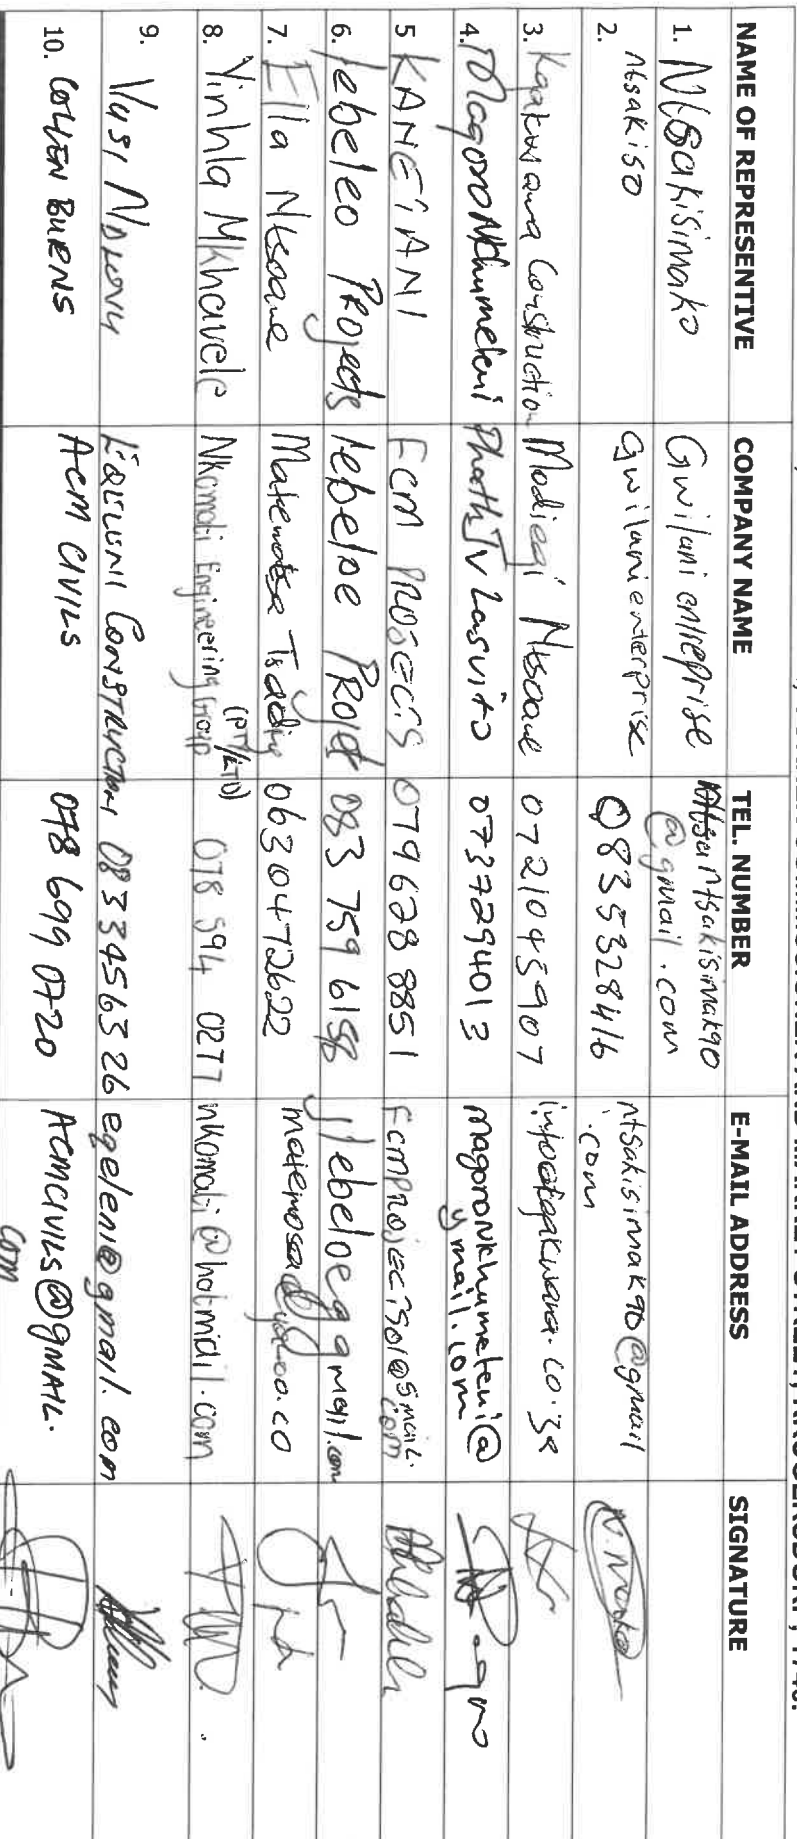 COMMISSIONER AND MARKET STREET, KRUGERSDORP, 1740.
NAME OF REPRESENTIVE COMPANY NAME TEL. NUMBER E-MAIL ADDRESS SIGNATURE
1. Ntsakisimako Gwilani entreprise ntsakisimak90
@gmail.com
2. Ntsakiso gwilanienterprise 0835328416 ntsakisimak90@gmail
.com
3. Kgakwana Construction Modiegi Ntsoane 0721045907
4. Magoro Nkhumeleni Phathi JV Lasvito 0737294013 magoronkhumeleni@
gmail.com
5 KANEIANI FCM PROJECTS 079628 8851 FCMPROJECTS01@gmail.
com
6. Lebeleo Projects lebeloe Projet 083 759 6156
7. Ella Ntsoane Matemosa Trading 0630472622
8. Yinhla Mkhavele Nkomati Engineering Group
(PTY/LTD) 078 594 0277 nkomati@hotmail.com
9. Vusi Ndlovu Construction 0833456326 egeleni@gmail.com
10. COHEN BURNS ACM CIVILS 078 699 0720 ACMCIVILS@gMAIL.
com